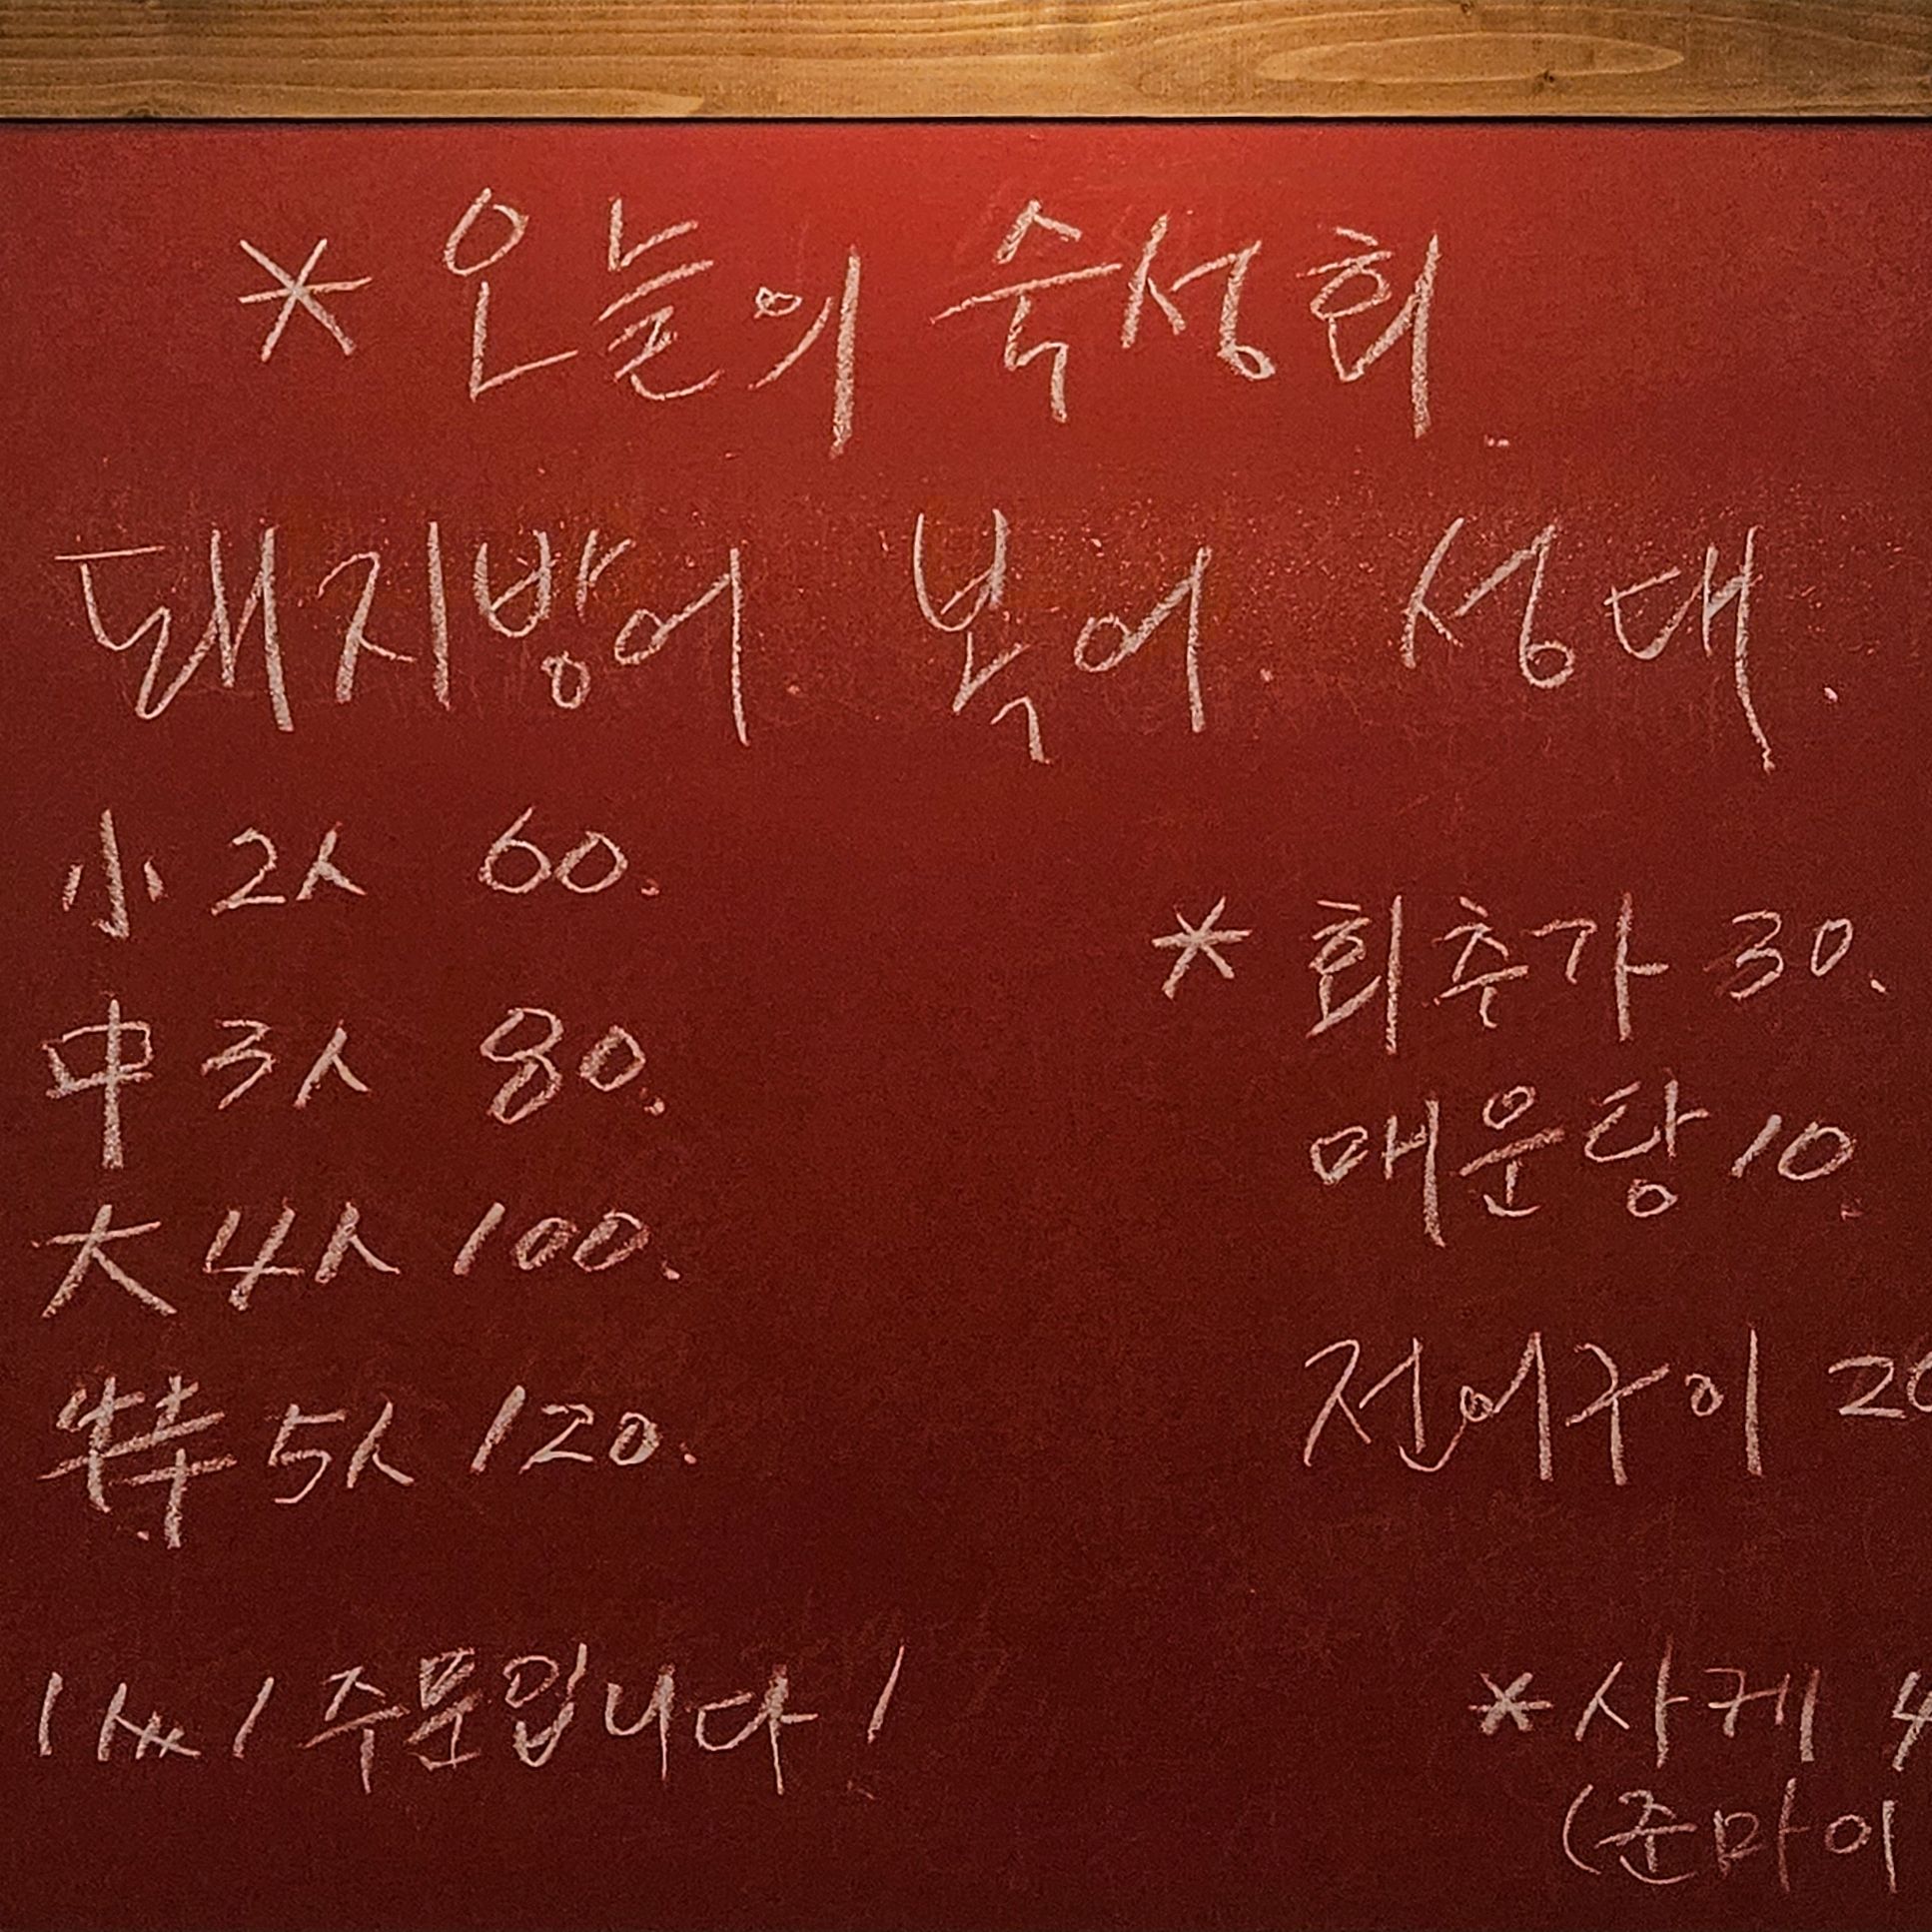 * 오늘의 숙성회.
돼지방어. 복어. 성대.
小 2人 60.
中 3人 80.
大 4人 100.
特 5人 120.
* 회추가 30.
매운탕 10.
전어구이
1人 1 주문입니다!
* 사케
(준마이